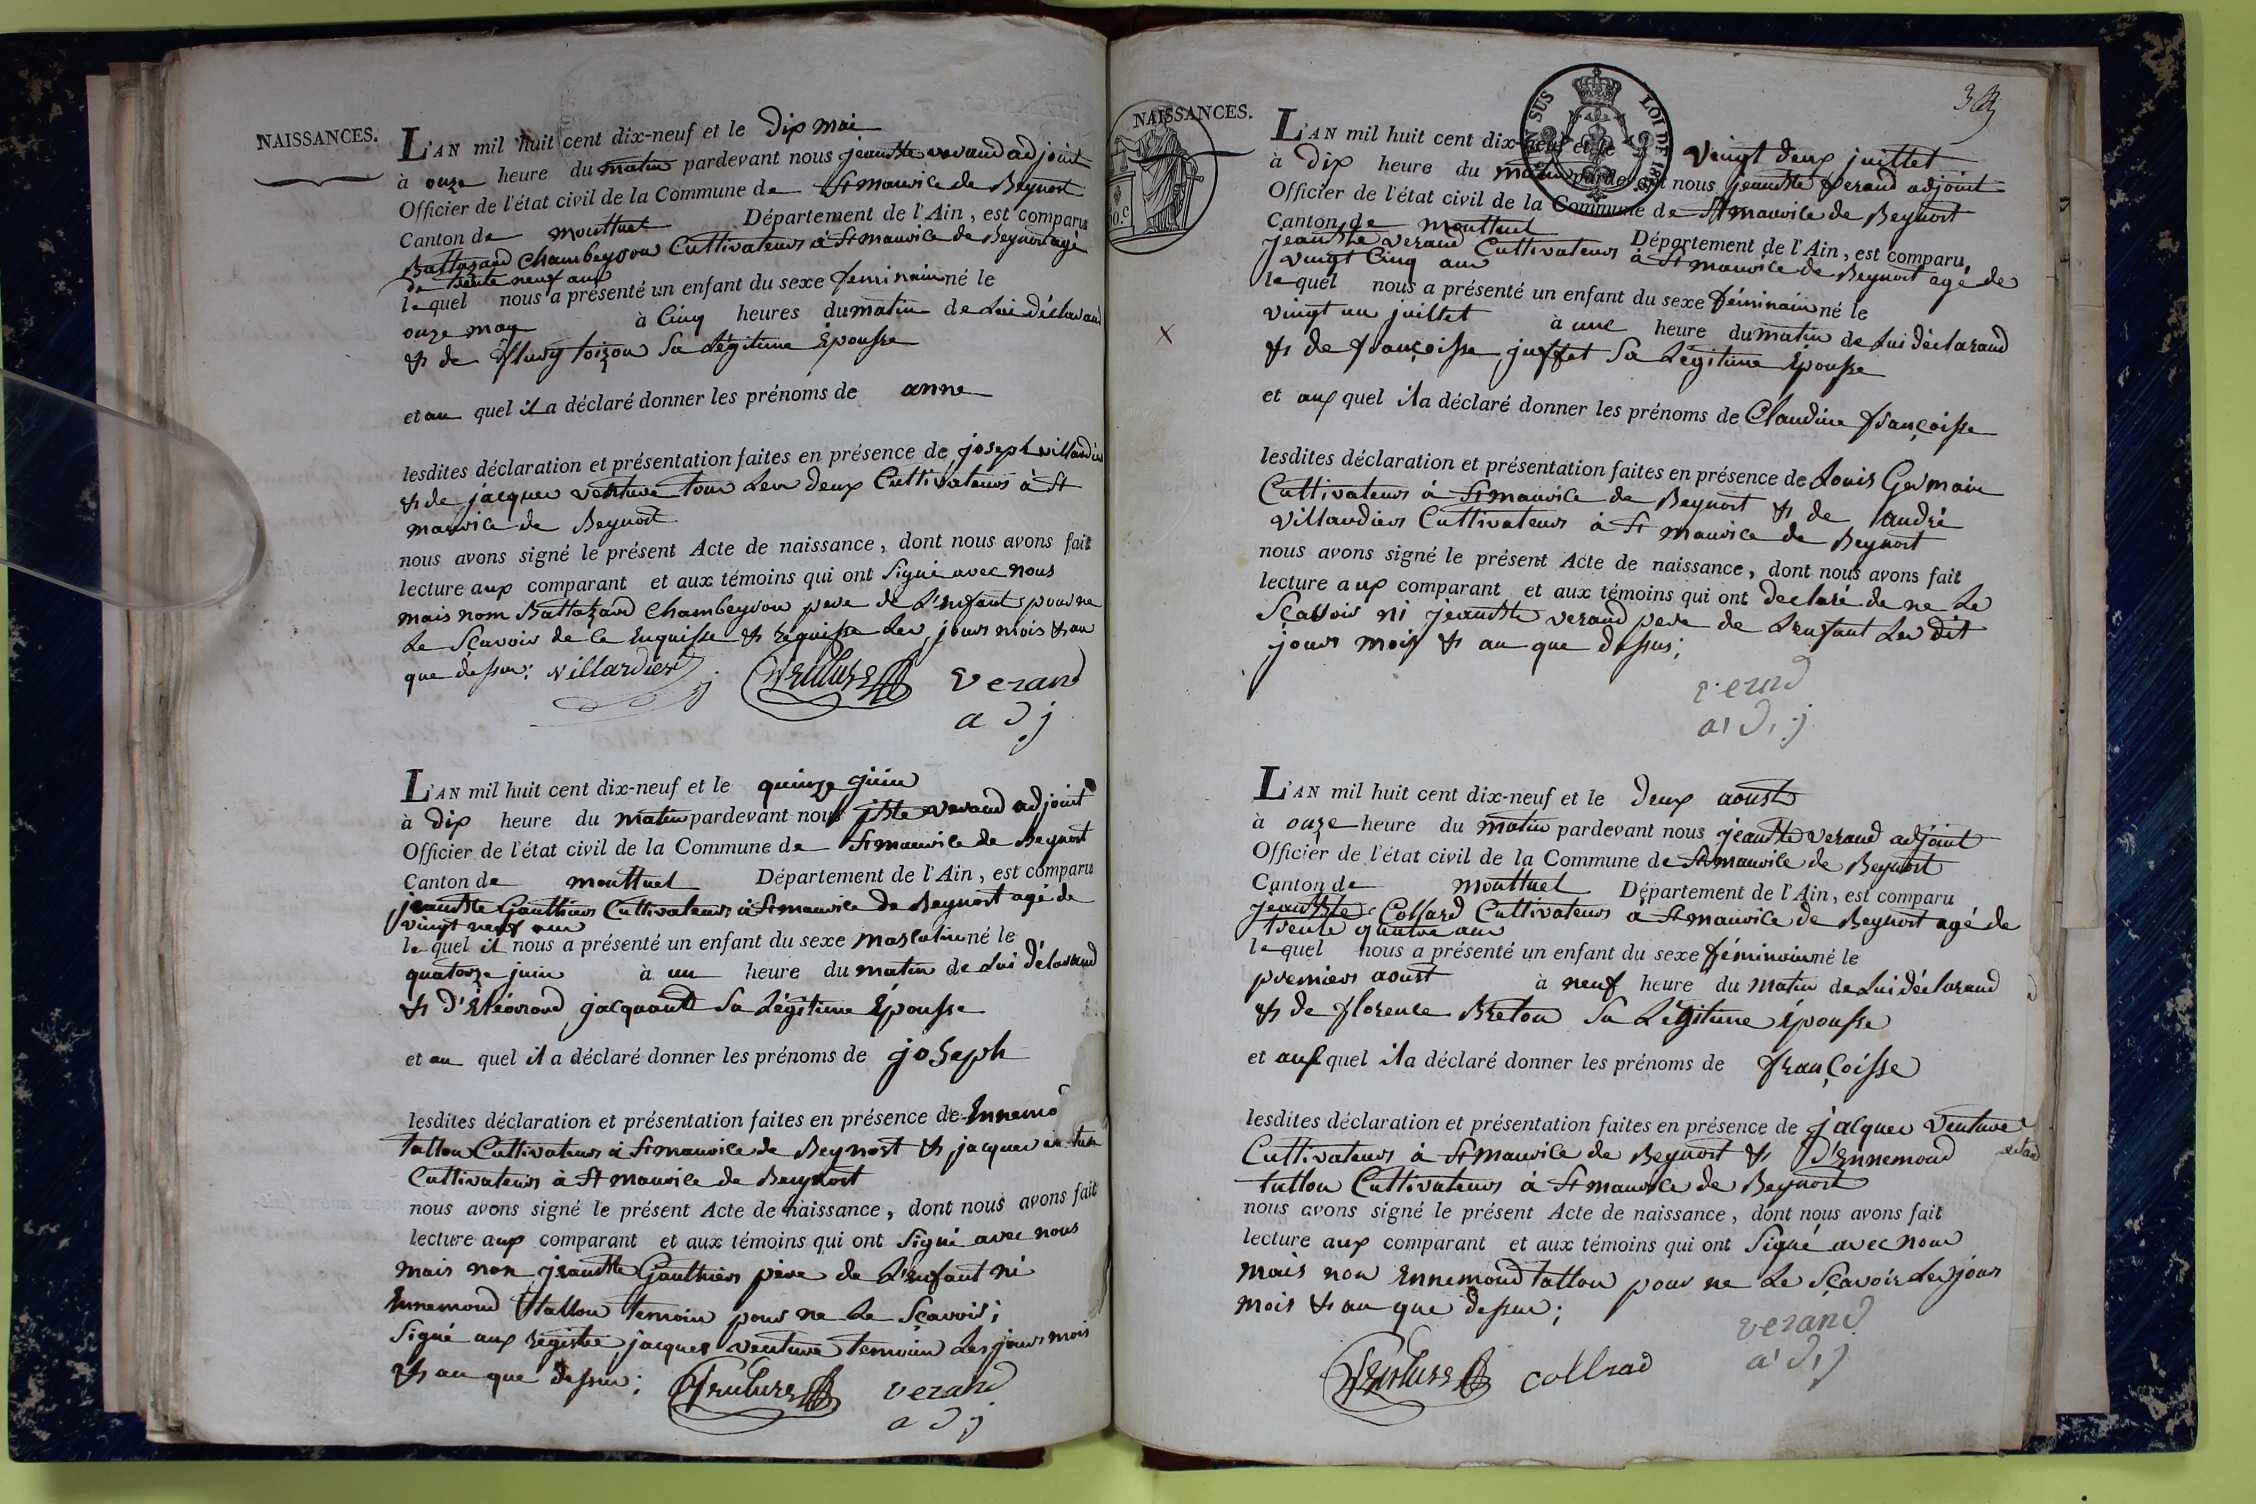 NAISSANCES.
L'AN mil huit cent dix-neuf et le dix mai
à onze heure du matin pardevant nous jean Bte verand adjoint
Officier de l'état civil de la Commune de St maurice de Beynost
Canton de montluel Département de l'Ain, est comparu
Baltazard Chambeyron Cultivateur à St maurice de Beynost agé
de trente neuf ans
lequel nous a présenté un enfant du sexe feminain né le
onze may à Cinq heures du matin de Lui déclarand
& de toizon Sa Légitime Épousse
et au quel il a déclaré donner les prénoms de anne
lesdites déclaration et présentation faites en présence de joseph villardier
& de jacques venture tous Les deux Cultivateurs à St
maurice de Beynost
nous avons signé le présent Acte de naissance, dont nous avons fait
lecture aux comparant et aux témoins qui ont Signé avec nous
mais nom Baltazard Chambeyron pere de L'enfant pour ne
Le Scavoir de ce Enquisse & Requisse Les jours mois & an
que dessus; villardier Venture verand
adj
L'AN mil huit cent dix-neuf et le quinze juin
à dix heure du matin pardevant nous j Bte verand adjoint
Officier de l'état civil de la Commune de St maurice de Beynost
Canton de montluel Département de l'Ain, est comparu
jean Bte Gauthier Cultivateur à St maurice de Beynost agé de
vingt neuf ans
lequel il nous a présenté un enfant du sexe mascalin né le
quatorze juin à un heure du matin de Lui délarand
& d' jacquand Sa Légitime Épousse
et au quel il a déclaré donner les prénoms de joseph
lesdites déclaration et présentation faites en présence de Ennemo
tallon Cultivateur à St maurice de Beynost & jacques
Cultivateur à St maurice de Beynost
nous avons signé le présent Acte de naissance, dont nous avons fait
lecture aux comparant et aux témoins qui ont Signé avec nous
mais non jean Bte Gauthier père de L'enfant ni
Ennemond tallon temoin pour ne Le Scavoir;
Signé aux registre jacques venture temoin Les jours mois
& an que dessus; Venture verand
adj
NAISSANCES.
EN SUS LOI DE
L'AN mil huit cent dix-neuf et le vingt deux juillet
à dix heure du matin pardevant nous jean Bte verand adjoint
Officier de l'état civil de la Commune de St maurice de Beynost
Canton de montluel Département de l'Ain, est comparu,
jean Bte verand Cultivateur à St maurice de Beynost agé de
vingt Cinq ans
lequel nous a présenté un enfant du sexe féminain né le
vingt un juillet à une heure du matin de Lui déclarand
& de françoisse juffet Sa Légitime Épousse
et aux quel il a déclaré donner les prénoms de Claudine françoisse
lesdites déclaration et présentation faites en présence de Louis Germain
Cultivateur à St maurice de Beynost & de andré
villardier Cultivateur à St maurice de Beynost
nous avons signé le présent Acte de naissance, dont nous avons fait
lecture aux comparant et aux témoins qui ont declaré de ne Le
Scavoir ni jean Bte verand pere de L'enfant Les dit
jours mois & an que dessus;
verand
adj
L'AN mil huit cent dix-neuf et le deux aoust
à onze heure du matin pardevant nous jean Bte verand adjoint
Officier de l'état civil de la Commune de St maurice de Beynost
Canton de montluel Département de l'Ain, est comparu
jean Bte Collard Cultivateur à St maurice de Beynost agé de
trente quatre ans
lequel nous a présenté un enfant du sexe féminain né le
premier aoust à neuf heure du matin de Lui déclarand
& de florence Breton Sa Légitime Épousse
et aux quel il a déclaré donner les prénoms de françoisse
lesdites déclaration et présentation faites en présence de jacques venture
Cultivateur à St maurice de Beynost & d'Ennemond
tallon Cultivateur à St maurice de Beynost
nous avons signé le présent Acte de naissance, dont nous avons fait
lecture aux comparant et aux témoins qui ont Signé avec nous
mais non Ennemond tallon pour ne Le Scavoir Les jours
mois & an que dessus;
verand
adj
Venture collrad